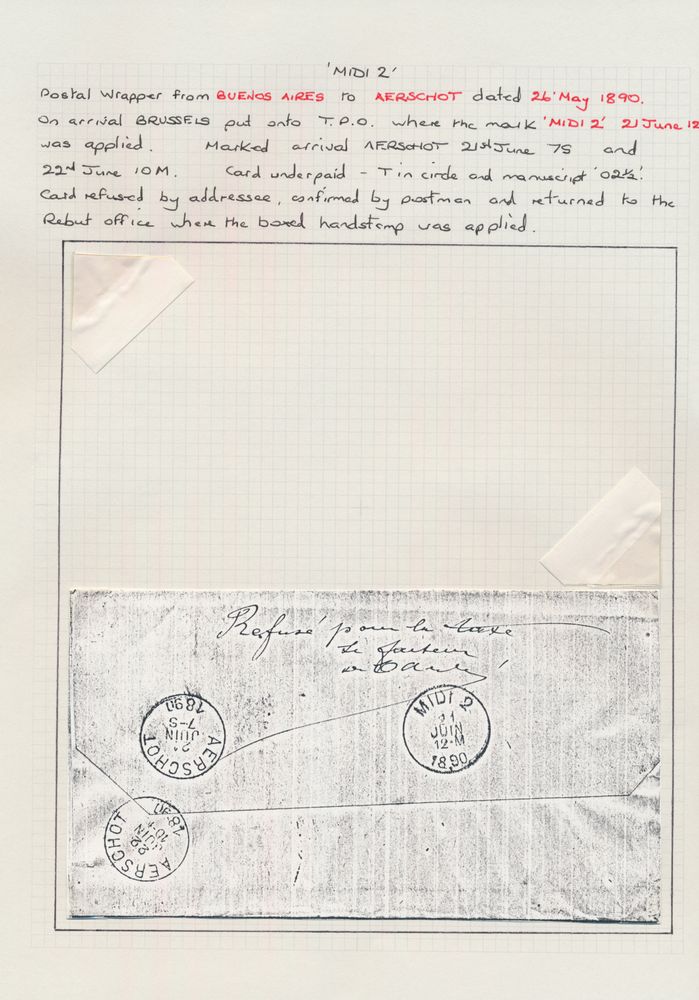 'MIDI 2'
Postal Wrapper from BUENOS AIRES to AERSCHOT dated 26 May 1890.
On arrival BRUSSELS put onto T.P.O. where the mark 'MIDI 2' 21 June 12
was applied. Marked arrival AERSCHOT 21st June 7S and
22nd June 10M. Card underpaid - T in circle and manuscript '02½'.
Card refused by addressee, confirmed by postman and returned to the
Rebut office where the boxed handstamp was applied.
Refusé pour la taxe
Le facteur
MIDI 2
JUIN
12-M
1890
AERSCHOT
JUIN
7-S
1890
AERSCHOT
22
JUIN
1890